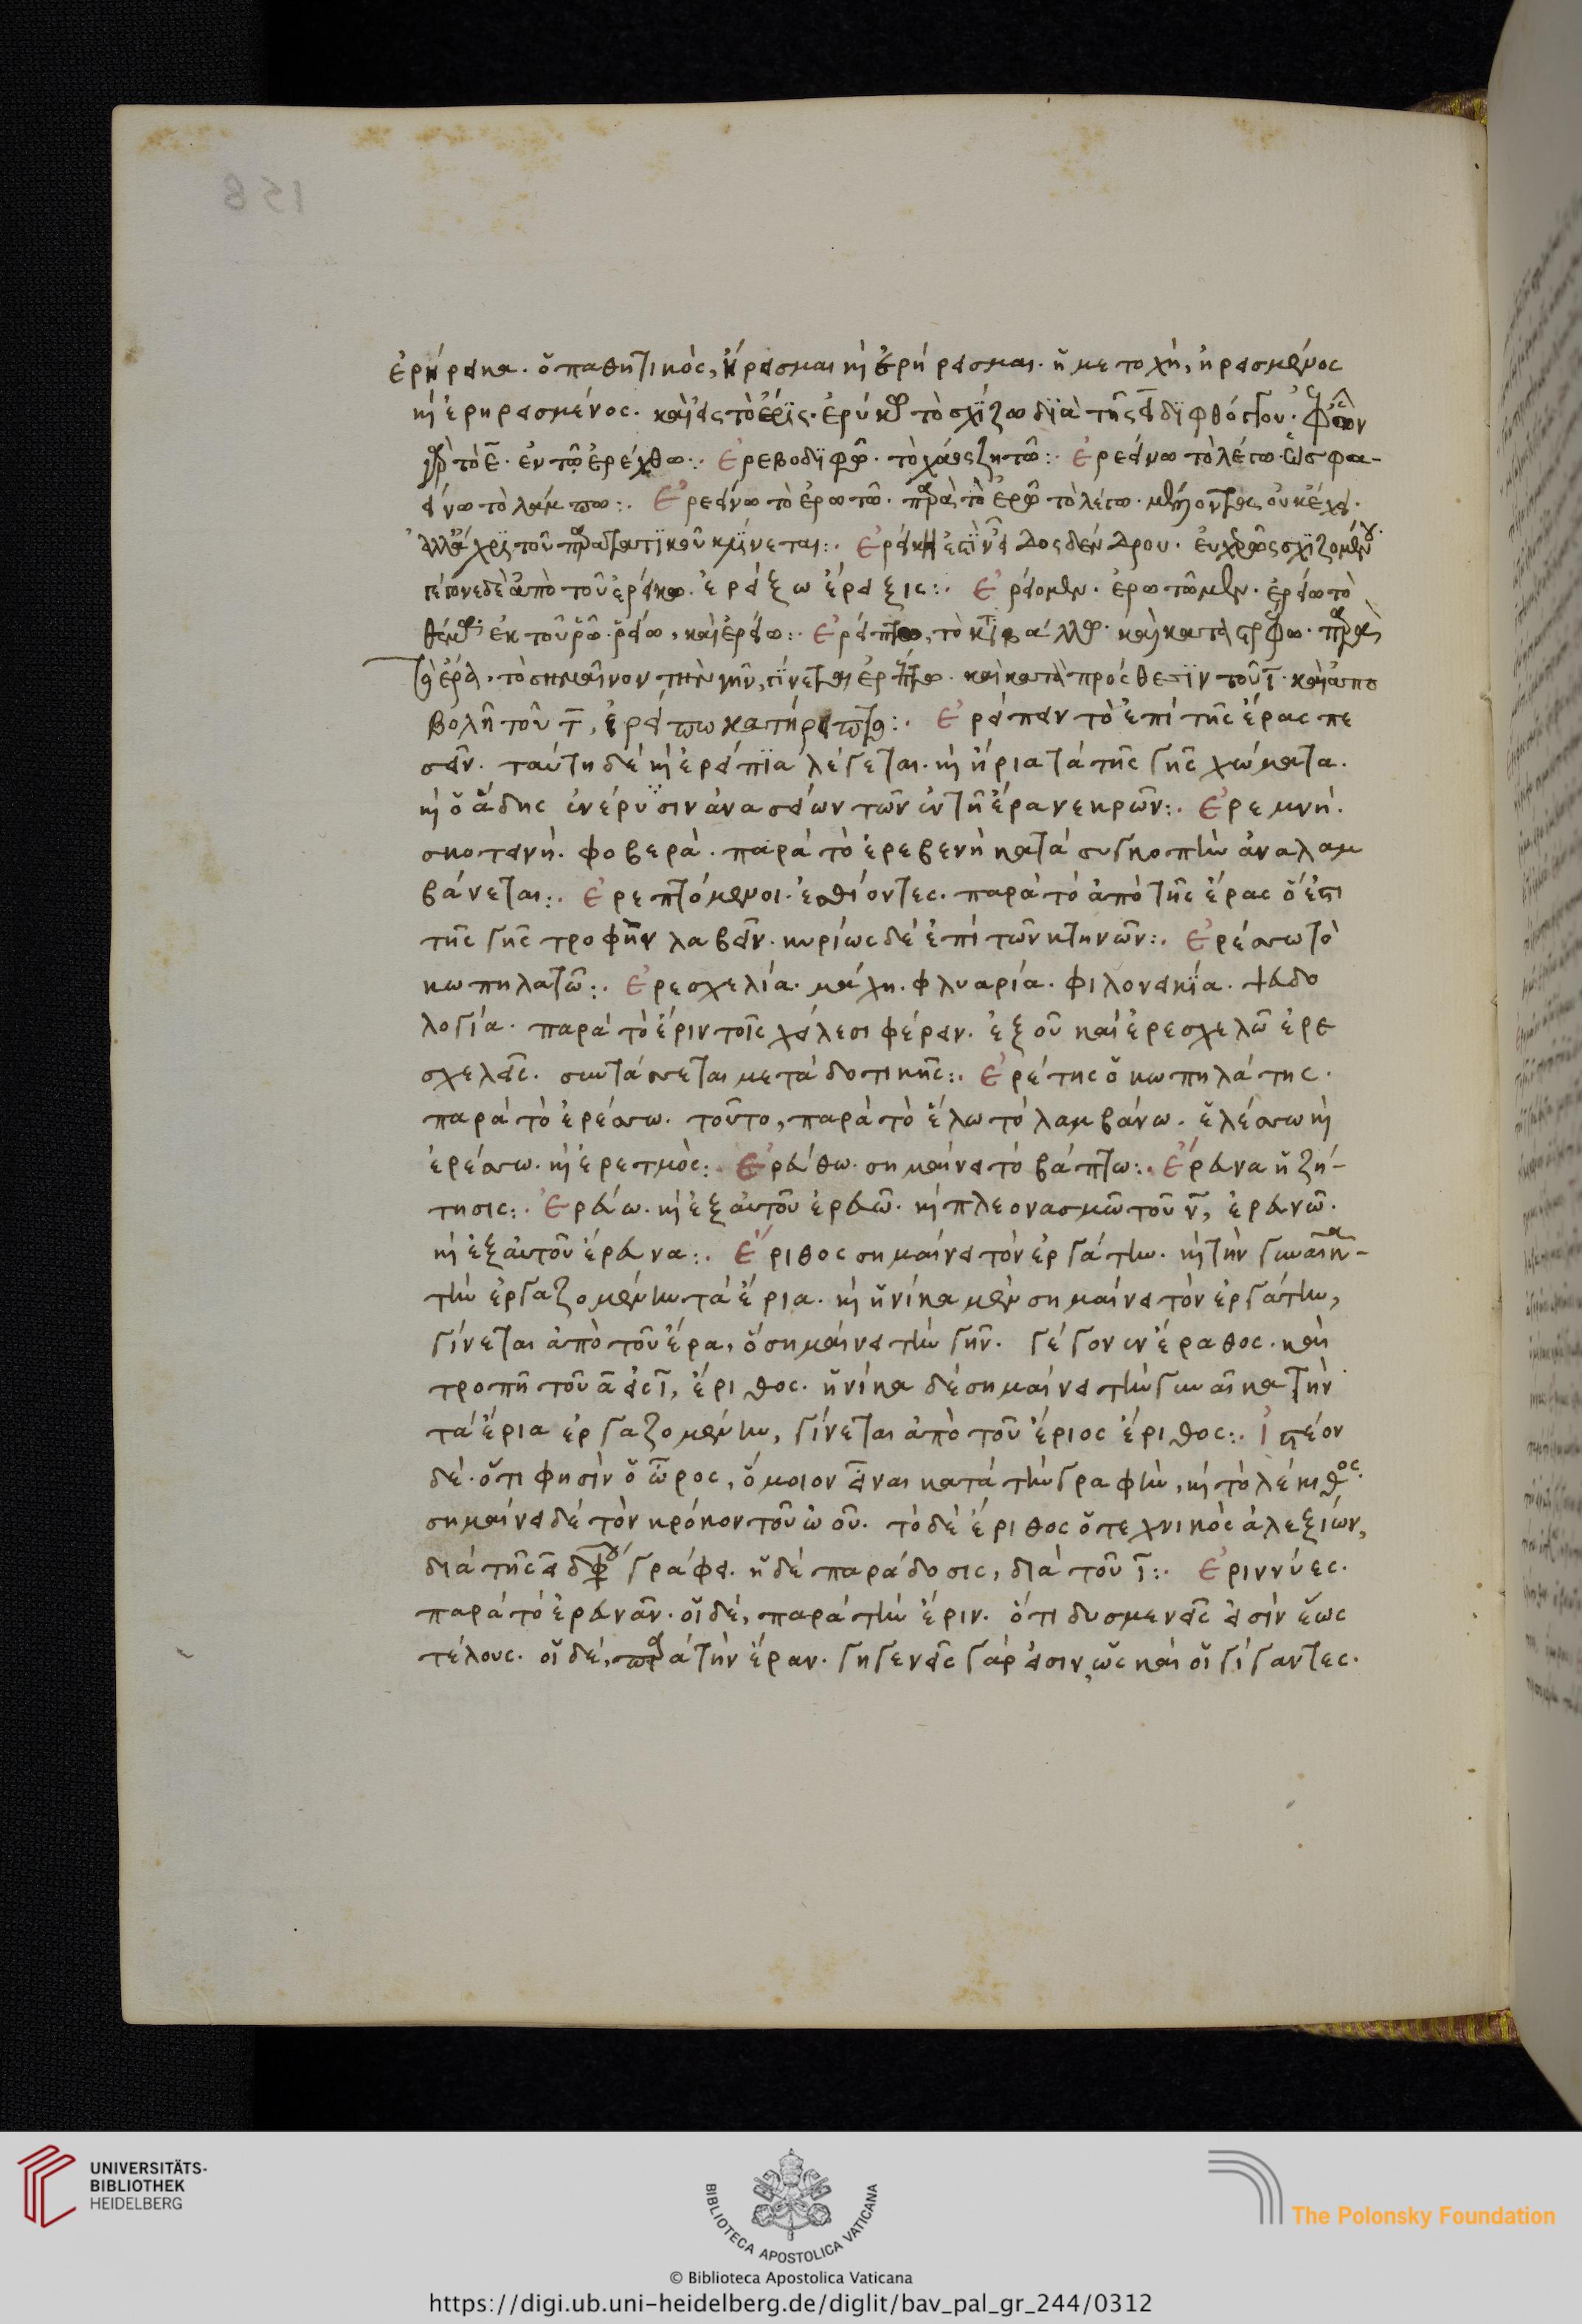 158
ἐρήρεικα. ὁ παθητικὸς, ἤρεισμαι καὶ ἐρήρεισμαι. ἡ μετοχὴ, ἠρεισμένος
καὶ ἐρηρεισμένος. καὶ εἰς τὸ
γὰρ τὸ ε̄. ἐν τῷ ἐρέχθω:. Ἐρεβοδιφῶ. τὸ χάος ζητῶ:. Ἐρεείνω τὸ λέγω. ὡς φα-
είνω τὸ λάμπω:. Ἐρεείνω τὸ ἐρωτῶ. παρὰ τὸ ἐρῶ τὸ λέγω. μέλλοντα οὐκ ἔχει.
ἀλλ' ἄχρι τοῦ παρατατικοῦ κλίνεται:. Ἐρείκη ἐστὶν εἶδος δένδρου. εὐχερῶς σχιζομένου.
γέγονε δὲ ἀπὸ τοῦ ἐρείκω. ἐρείξω ἔρειξις:. Ἐρείομεν. ἐρωτῶμεν. ἐρείω τὸ
θέμα. ἐκ τοῦ ῥῶ. ῥείω, καὶ ἐρείω:. Ἐρείπω, τὸ καταβάλλω. καὶ καταστρέφω. παρὰ
τὸ ἔρα, τὸ σημαῖνον τὴν γῆν, γίνεται καὶ κατὰ πρόσθεσιν τοῦ ῑ. καὶ ἀπο
βολῇ τοῦ τ̄, ἐρείπω κατήρειπτο:. Ἐρείπειν τὸ ἐπὶ τῆς ἔρας πε
σεῖν. ταύτῃ δὲ καὶ ἐρείπια λέγεται. καὶ ἠρία τὰ τῆς γῆς χώματα.
καὶ ὁ ἅδης ἐνέρϋσιν ἀνασσείων τῶν ἐν τῇ ἔρα νεκρῶν:. Ἐρεμνή.
σκοτεινή. φοβερὰ. παρὰ τὸ ἐρεβενὴ κατὰ συγκοπὴν ἀναλαμ
βάνεται:. Ἐρεπτόμενοι. ἐσθίοντες. παρὰ τὸ ἀπὸ τῆς ἔρας ὅ ἐστι
τῆς γῆς τροφὴν λαβεῖν. κυρίως δὲ ἐπὶ τῶν κτηνῶν:. Ἐρέσσω τὸ
κωπηλατῶ:. Ἐρεσχελία. μάχη. φλυαρία. φιλονεικία. ψευδο
λογία. παρὰ τὸ ἔριν τοῖς χείλεσι φέρειν. ἐξ οὗ καὶ ἐρεσχελῶ ἐρε
σχελεῖς. συντάσσεται μετὰ δοτικῆς:. Ἐρέτης ὁ κωπηλάτης.
παρὰ τὸ ἐρέσσω. τοῦτο, παρὰ τὸ ἕλω τὸ λαμβάνω. ἑλέσσω καὶ
ἐρέσσω. καὶ ἐρετμὸς:. Ἐρεύθω. σημαίνει τὸ βάπτω:. Ἔρευνα ἡ ζή-
τησις:. Ἐρεύω. καὶ ἐξ αὐτοῦ ἐρευῶ. καὶ πλεονασμῶ τοῦ ν̄, ἐρευνῶ.
καὶ ἐξ αὐτοῦ ἔρευνα:. Ἔριθος σημαίνει τὸν ἐργάτην. καὶ τὴν γυναῖκα
τὴν ἐργαζομένην τὰ ἔρια. καὶ ἡνίκα μὲν σημαίνει τὸν ἐργάτην,
γίνεται ἀπὸ τοῦ ἔρα, ὃ σημαίνει τὴν γῆν. γέγονεν ἔραθος. καὶ
τροπῇ τοῦ ᾱ εἰς ῑ, ἔριθος. ἡνίκα δὲ σημαίνει τὴν γυναῖκα τὴν
τὰ ἔρια ἐργαζομένην, γίνεται ἀπὸ τοῦ ἔριος ἔριθος:. Ἰστέον
δὲ. ὅτι φησὶν ὁ ὦρος, ὅμοιον εἶναι κατὰ τὴν γραφὴν, καὶ τὸ λέκιθος.
σημαίνει δὲ τὸν κρόκον τοῦ ὠοῦ. τὸ δὲ ἔριθος ὁ τεχνικὸς ἀλεξίων,
διὰ τῆς ει διφθόγγου γράφει. ἡ δὲ παράδοσις, διὰ τοῦ ῑ:. Ἐριννύες.
παρὰ τὸ ἐρευνᾶν. οἱ δὲ, παρὰ τὴν ἔριν. ὅτι δυσμενεῖς εἰσὶν ἕως
τέλους. οἱ δὲ, παρὰ τὴν ἔραν. γηγενεῖς γάρ εἰσιν, ὡς καὶ οἱ γίγαντες.
UNIVERSITÄTS-
BIBLIOTHEK
HEIDELBERG
BIBLIOTECA APOSTOLICA VATICANA
The Polonsky Foundation
© Biblioteca Apostolica Vaticana
https://digi.ub.uni-heidelberg.de/diglit/bav_pal_gr_244/0312